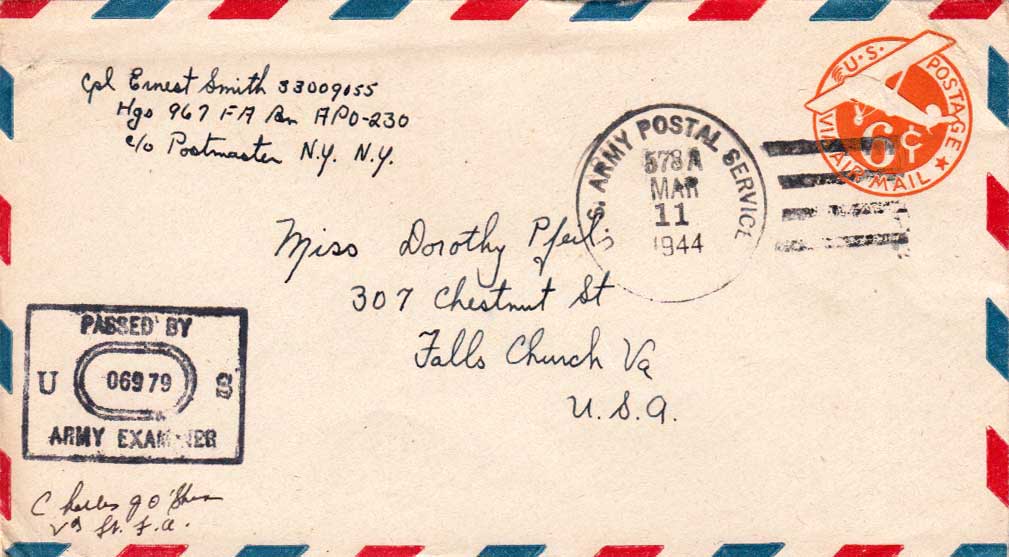 Cpl Ernest Smith 33009055
Hqs 967 FA Bn APO-230
c/o Postmaster N.Y. N.Y.
U.S. POSTAGE
6¢
VIA AIR MAIL
U.S. ARMY POSTAL SERVICE
578A
MAR
11
1944
Miss Dorothy Pfeil
307 Chestnut St
Falls Church Va
U.S.A.
PASSED BY
U 06979 S
ARMY EXAMINER
Charles J O'Shea
Lt. F.A.